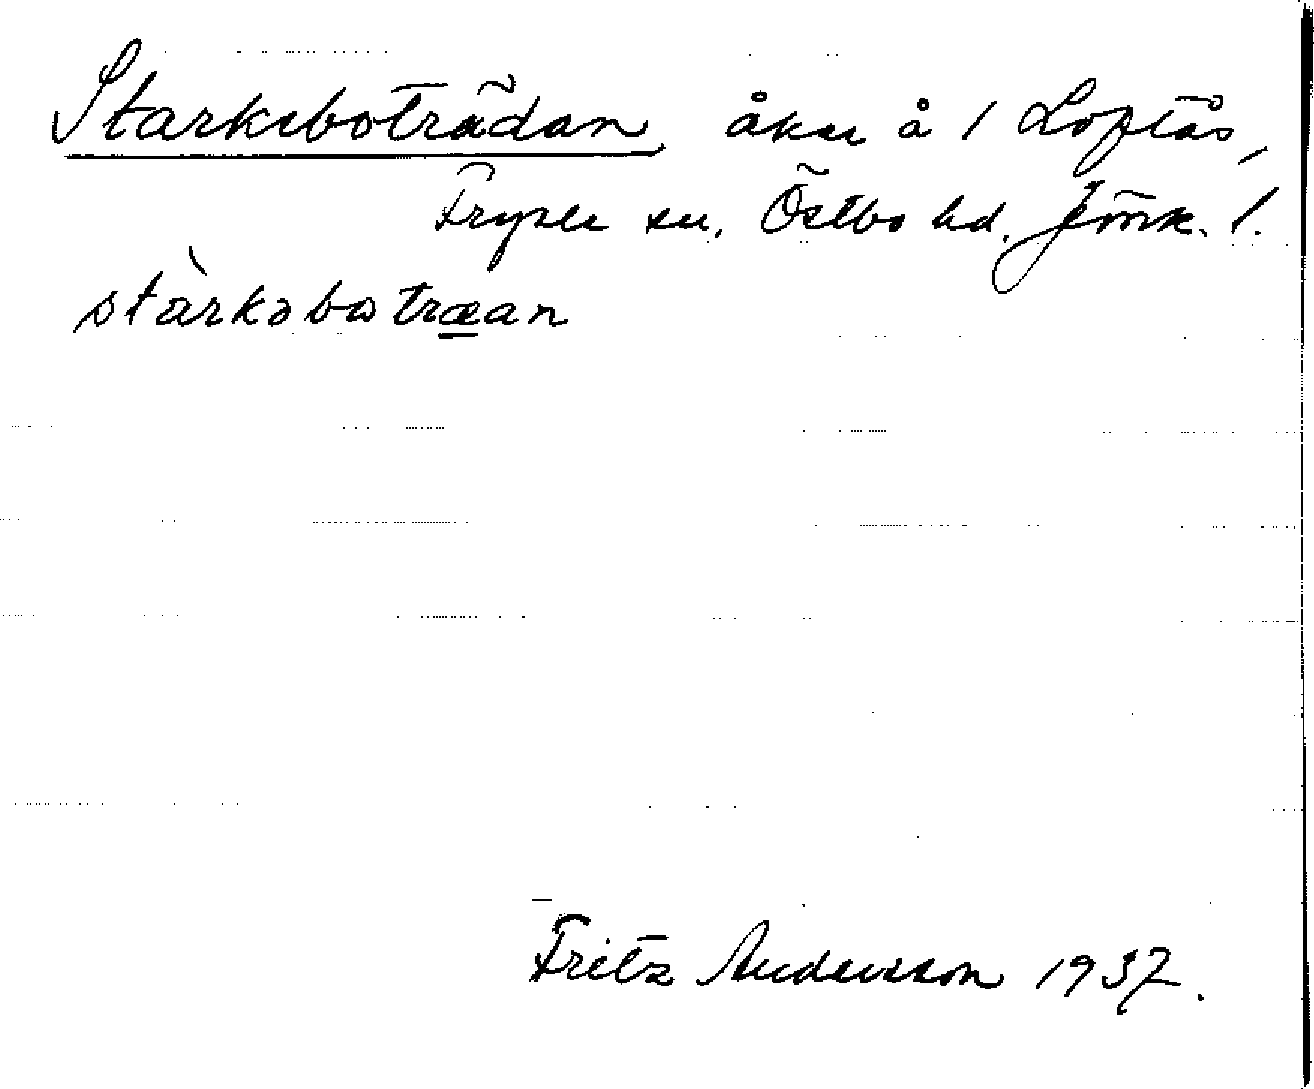 Starkeboträdan, åker å 1 Loftås,
Fryele sn, Östbo hd. Jönk. l.
stàrkəbωtræan
Fritz Andersson 1937.